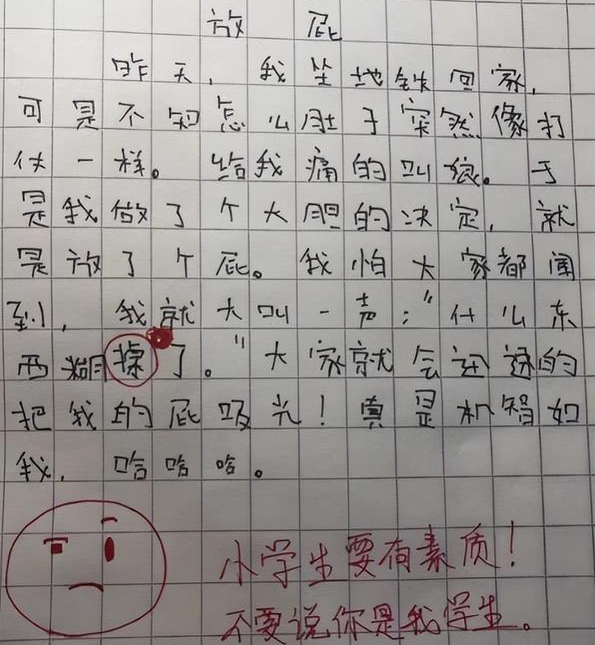 放屁
昨天，我坐地铁回家，
可是不知怎么肚子突然像打
仗一样。给我痛的叫狼。于
是我做了个大胆的决定，就
是放了个屁。我怕大家都闻
到，我就大叫一声：“什么东
西糊了。”大家就会迅速的
把我的屁吸光！真是机智如
我，哈哈哈。
小学生要有素质！
不要说你是我学生。